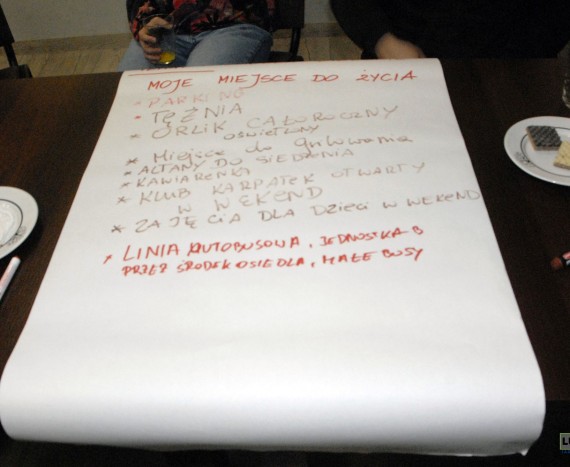 MOJE MIEJSCE DO ŻYCIA
• PARKING
• TĘŻNIA
* ORLIK CAŁOROCZNY
OŚWIETLONY
* Miejsce do grilowania
• ALTANY DO SIEDZENIA
* KAWIARENKI
* KLUB KARPATEK OTWARTY
W WEKEND
* ZAJĘCIA DLA Dzieci W WEKEND
* LINIA AUTOBUSOWA, JEDNOSTKA B
PRZEZ ŚRODEK OSIEDLA, MAŁE BUSY